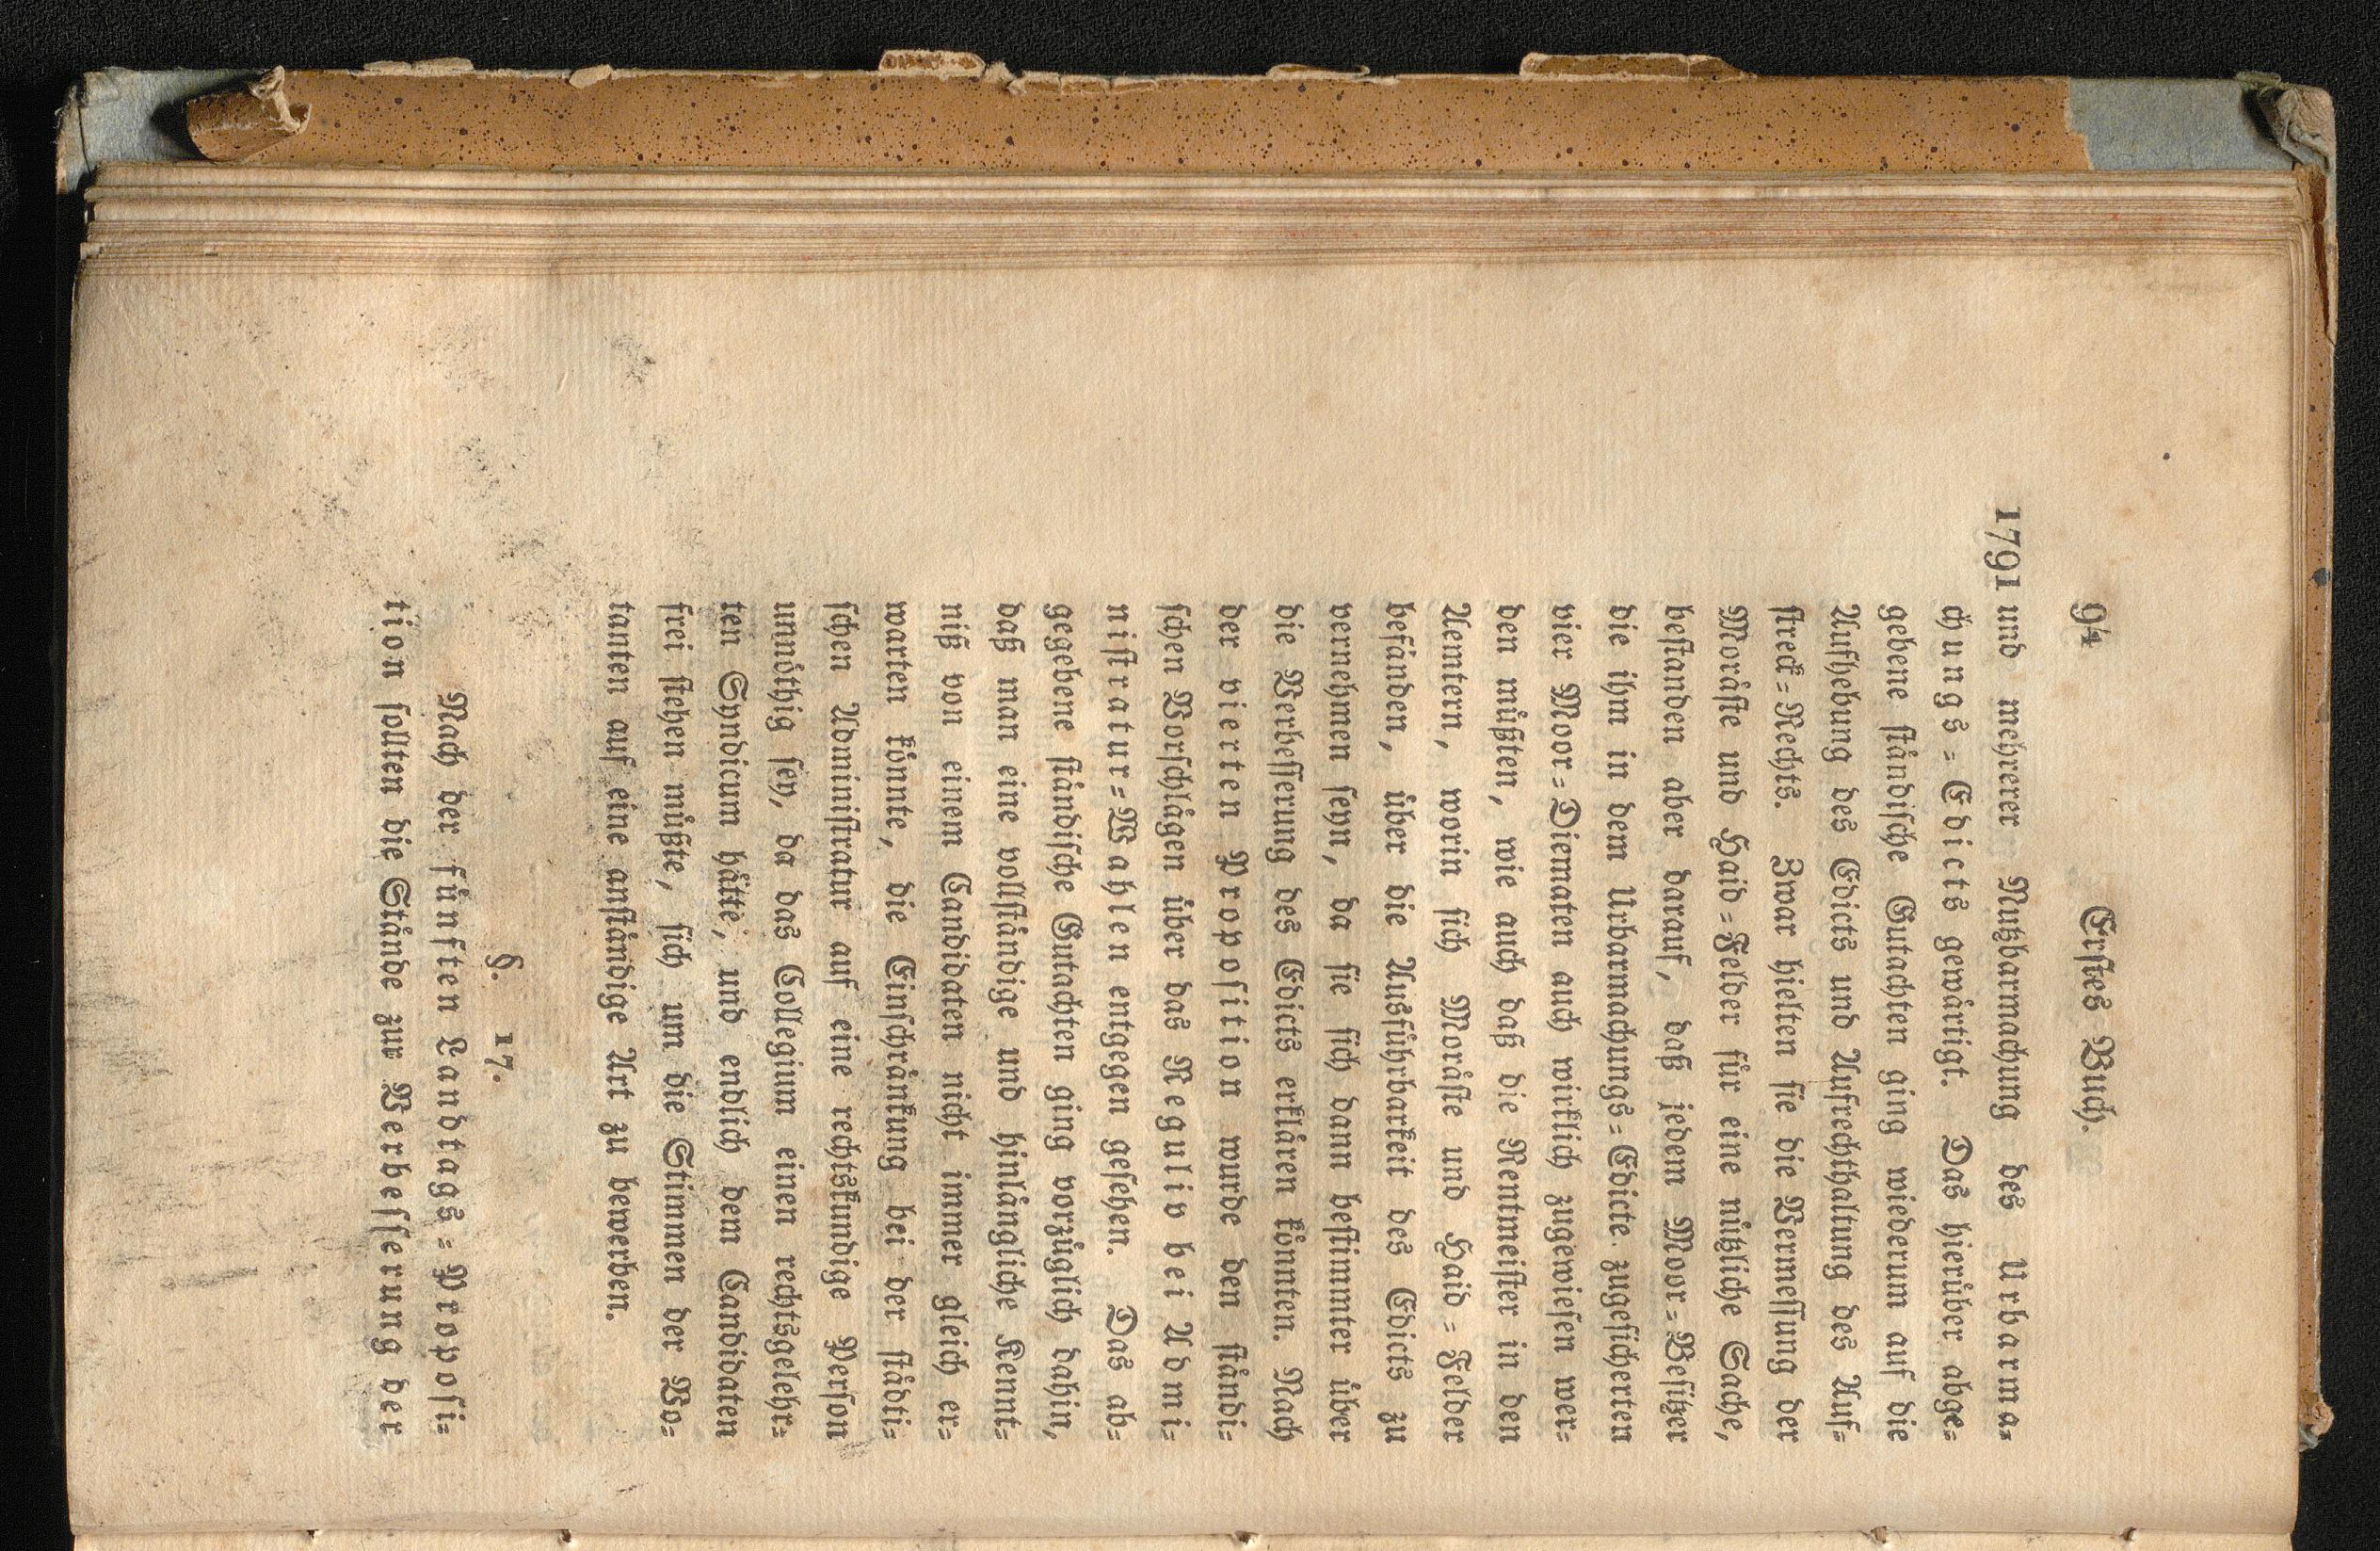 94 Erstes Buch.
1791 und mehrerer Nutzbarmachung des Urbarma-
chungs-Edicts gewärtigt. Das hierüber abge-
gebene ständische Gutachten ging wiederum auf die
Aufhebung des Edicts und Aufrechthaltung des Auf-
streck-Rechts. Zwar hielten sie die Vermessung der
Moräste und Haid-Felder für eine nützliche Sache,
bestanden aber darauf, daß jedem Moor-Besitzer
die ihm in dem Urbarmachungs-Edicte zugesicherten
vier Moor-Diematen auch wirklich zugewiesen wer-
den müßten, wie auch daß die Rentmeister in den
Aemtern, worin sich Moräste und Haid-Felder
befänden, über die Ausführbarkeit des Edicts zu
vernehmen seyn, da sie sich dann bestimmter über
die Verbesserung des Edicts erklären könnten. Nach
der vierten Proposition wurde den ständi-
schen Vorschlägen über das Reguliv bei Admi-
nistratur-Wahlen entgegen gesehen. Das ab-
gegebene ständische Gutachten ging vorzüglich dahin,
daß man eine vollständige und hinlängliche Kennt-
niß von einem Candidaten nicht immer gleich er-
warten könnte, die Einschränkung bei der städti-
schen Administratur auf eine rechtskundige Person
unnöthig sey, da das Collegium einen rechtsgelehr-
ten Syndicum hätte, und endlich dem Candidaten
frei stehen müßte, sich um die Stimmen der Vo-
tanten auf eine anständige Art zu bewerben.
§. 17.
Nach der fünften Landtags-Proposi-
tion sollten die Stände zur Verbesserung der